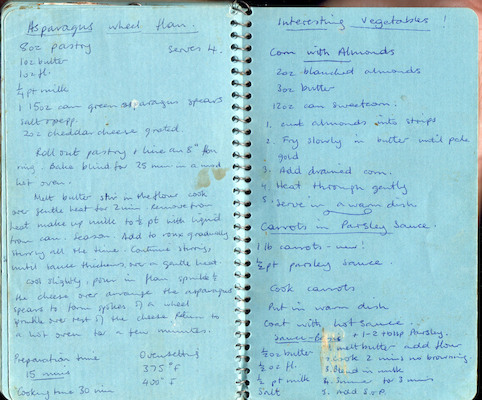 Asparagus wheel flan.
8oz pastry serves 4.
1oz butter
1oz fl.
1/4 pt milk
1 15oz can green asparagus spears
salt & pepp.
2oz cheddar cheese grated.
Roll out pastry & line an 8" flan
ring. Bake blind for 25 min in a mod
hot oven.
Melt butter stir in the flour cook
over gentle heat for 2 mins. Remove from
heat make up milk to 1/2 pt with liquid
from can. Season. Add to roux gradually
stirring all the time. Continue stirring,
until sauce thickens, over a gentle heat.
Cool slightly, pour in flan sprinkle
the cheese over arrange the asparagus
spears to form spokes of a wheel
sprinkle over rest of the cheese Return to
a hot oven for a few minutes.
Preparation time Oven setting
15 mins 375°F
Cooking time 30 min 400°F
Interesting Vegetables!
Corn with Almonds
2oz blanched almonds
3oz butter
12oz can sweetcorn.
1. cut almonds into strips
2. Fry slowly in butter until pale
gold
3. Add drained corn.
4. Heat through gently
5. Serve in a warm dish.
Carrots in Parsley Sauce.
1 lb carrots - new!
1/2 pt parsley sauce.
Cook carrots
Put in warm dish
Coat with hot sauce.
Sauce - + 1-2 tbsp Parsley.
1/2oz butter 1 melt butter add flour
1/2 oz fl. 2. cook 2 mins no browning.
1/2 pt milk 3. Blend in milk
Salt 4. Simmer for 3 mins
5. Add S & P.